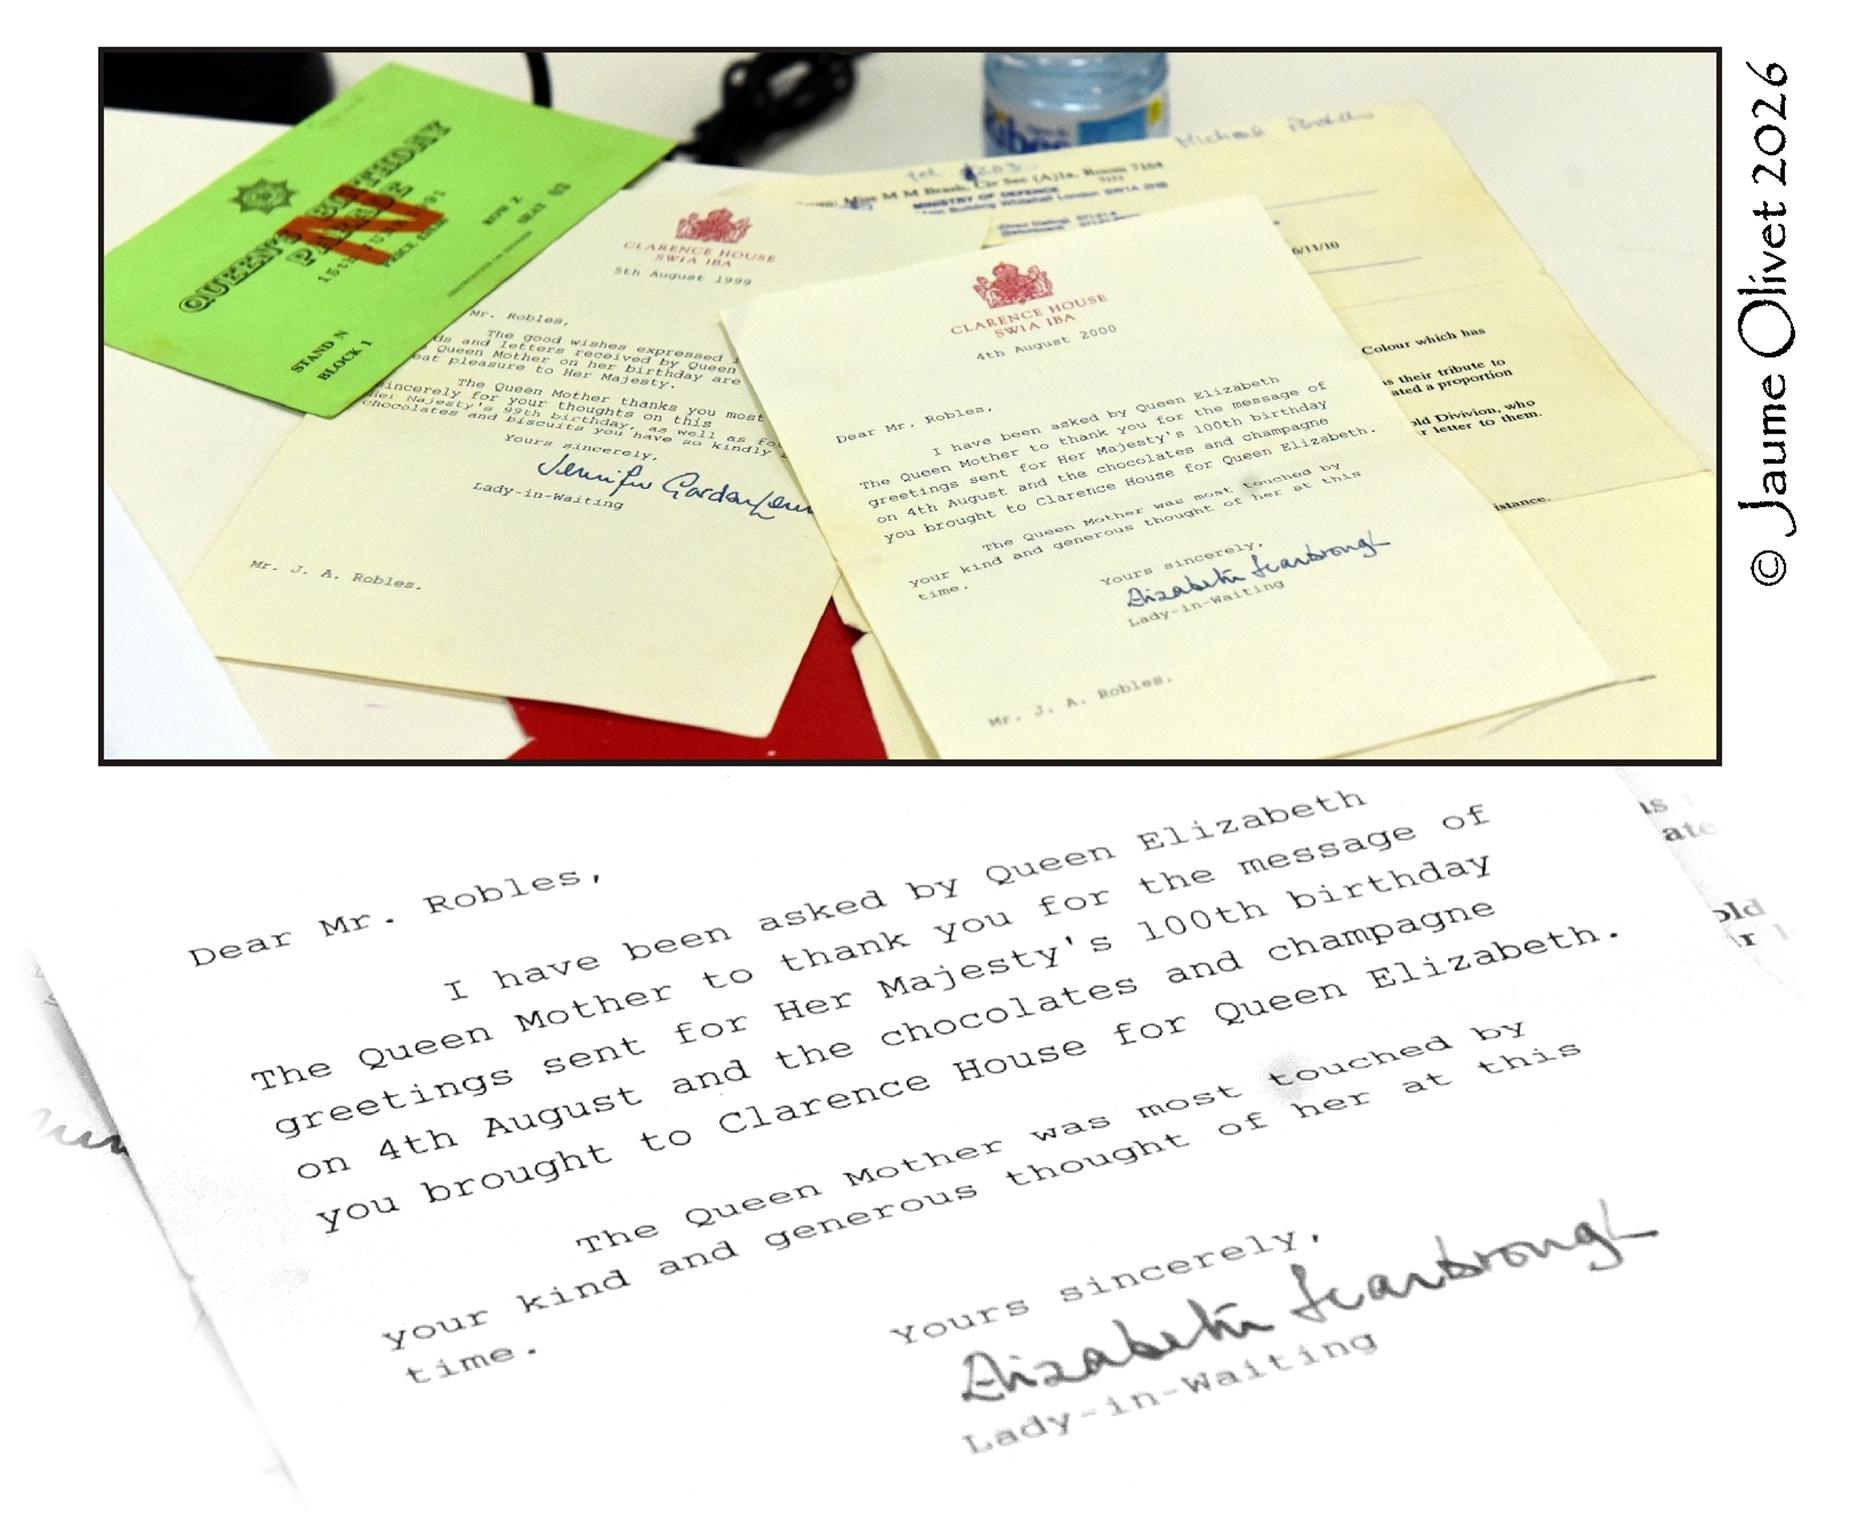 QUEEN'S BIRTHDAY
PARADE
N
15th JUNE 1991
ROW Z
SEAT 03
STAND N
BLOCK 1
CLARENCE HOUSE
SW1A 1BA
5th August 1999
Mr. Robles,
The good wishes expressed
and letters received by Queen
Queen Mother on her birthday are
pleasure to Her Majesty.
The Queen Mother thanks you most
sincerely for your thoughts on this
Her Majesty's 99th birthday, as well as
chocolates and biscuits you have so kindly
Yours sincerely,
Jennifer Gordon
Lady-in-Waiting
Mr. J. A. Robles.
Michael Portillo
Miss M M Brash, Room 7164
MINISTRY OF DEFENCE
Main Building Whitehall London SW1A 2HB
6/11/10
Colour which has
their tribute to
a proportion
Divivion, who
letter to them.
CLARENCE HOUSE
SW1A 1BA
4th August 2000
Dear Mr. Robles,
I have been asked by Queen Elizabeth
The Queen Mother to thank you for the message of
greetings sent for Her Majesty's 100th birthday
on 4th August and the chocolates and champagne
you brought to Clarence House for Queen Elizabeth.
The Queen Mother was most touched by
your kind and generous thought of her at this
time.
Yours sincerely,
Elizabeth Scarbrough
Lady-in-Waiting
Mr. J. A. Robles.
© Jaume Olivet 2026
Dear Mr. Robles,
I have been asked by Queen Elizabeth
The Queen Mother to thank you for the message of
greetings sent for Her Majesty's 100th birthday
on 4th August and the chocolates and champagne
you brought to Clarence House for Queen Elizabeth.
The Queen Mother was most touched by
your kind and generous thought of her at this
time.
Yours sincerely,
Elizabeth Scarbrough
Lady-in-Waiting